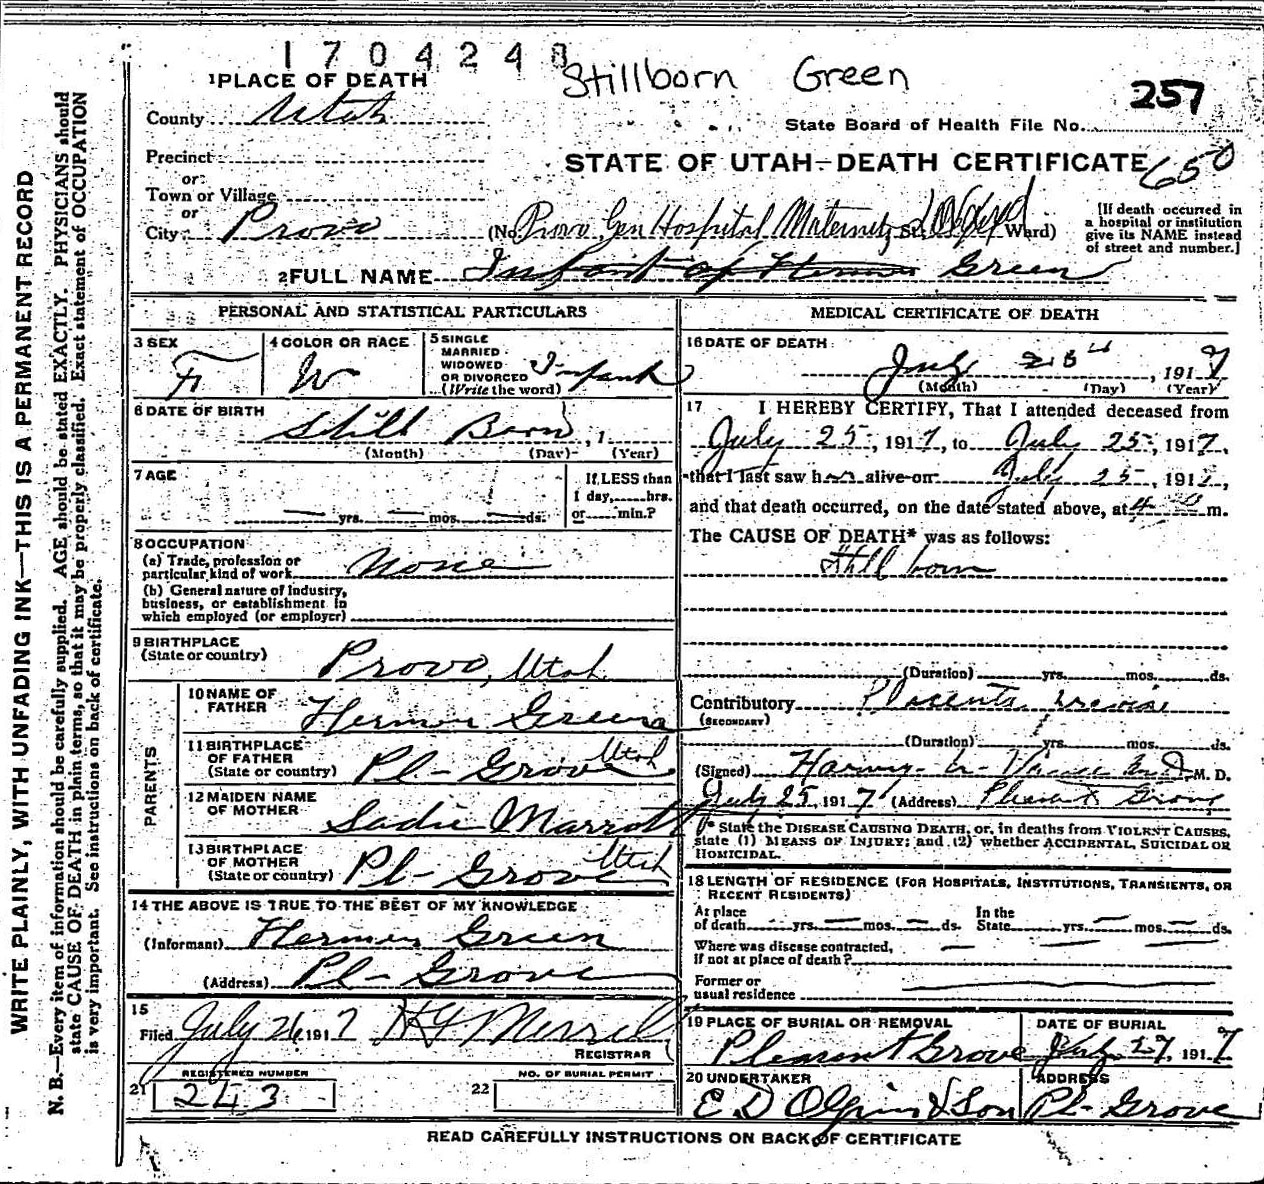 1704248
Stillborn Green
257
1 PLACE OF DEATH
County Utah
State Board of Health File No.
Precinct
STATE OF UTAH-DEATH CERTIFICATE
650
or
Town or Village
or
City Provo
(No Provo Gen Hospital Maternity St. Ward)
[If death occurred in
a hospital or institution
give its NAME instead
of street and number.]
2 FULL NAME Infant of Hermon Green
PERSONAL AND STATISTICAL PARTICULARS
3 SEX
F
4 COLOR OR RACE
W
5 SINGLE
MARRIED
WIDOWED
OR DIVORCED
(Write the word)
Infant
6 DATE OF BIRTH
Still Born, 1
(Month) (Day) (Year)
7 AGE
yrs. mos. ds.
If LESS than
1 day, hrs.
or min.?
8 OCCUPATION
(a) Trade, profession or
particular kind of work None
(b) General nature of industry,
business, or establishment in
which employed (or employer)
9 BIRTHPLACE
(State or country) Provo, Utah
PARENTS
10 NAME OF
FATHER Hermon Green
11 BIRTHPLACE
OF FATHER
(State or country) Pl- Grove Utah
12 MAIDEN NAME
OF MOTHER Sadie Marrott
13 BIRTHPLACE
OF MOTHER
(State or country) Pl- Grove Utah
14 THE ABOVE IS TRUE TO THE BEST OF MY KNOWLEDGE
(Informant) Hermon Green
(Address) Pl- Grove
15
Filed July 26, 1917 H G Merrill
REGISTRAR
REGISTERED NUMBER
21 243
NO. OF BURIAL PERMIT
22
MEDICAL CERTIFICATE OF DEATH
16 DATE OF DEATH
July 25th, 1917
(Month) (Day) (Year)
17 I HEREBY CERTIFY, That I attended deceased from
July 25, 1917, to July 25, 1917,
that I last saw h alive on July 25, 1917,
and that death occurred, on the date stated above, at 4 m.
The CAUSE OF DEATH* was as follows:
Still born
(Duration) yrs. mos. ds.
Contributory Placenta
(SECONDARY)
(Duration) yrs. mos. ds.
(Signed) M. D.
July 25, 1917 (Address) Pleasant Grove
* State the DISEASE CAUSING DEATH, or, in deaths from VIOLENT CAUSES,
state (1) MEANS OF INJURY; and (2) whether ACCIDENTAL, SUICIDAL OR
HOMICIDAL.
18 LENGTH OF RESIDENCE (FOR HOSPITALS, INSTITUTIONS, TRANSIENTS, OR
RECENT RESIDENTS)
At place In the
of death yrs. mos. ds. State yrs. mos. ds.
Where was disease contracted,
if not at place of death?
Former or
usual residence
19 PLACE OF BURIAL OR REMOVAL
Pleasant Grove
DATE OF BURIAL
July 27, 1917
20 UNDERTAKER
E D Olpin & Son
ADDRESS
Pl- Grove
READ CAREFULLY INSTRUCTIONS ON BACK OF CERTIFICATE
WRITE PLAINLY, WITH UNFADING INK—THIS IS A PERMANENT RECORD
N. B.—Every item of information should be carefully supplied. AGE should be stated EXACTLY. PHYSICIANS should
state CAUSE OF DEATH in plain terms, so that it may be properly classified. Exact statement of OCCUPATION
is very important. See instructions on back of certificate.